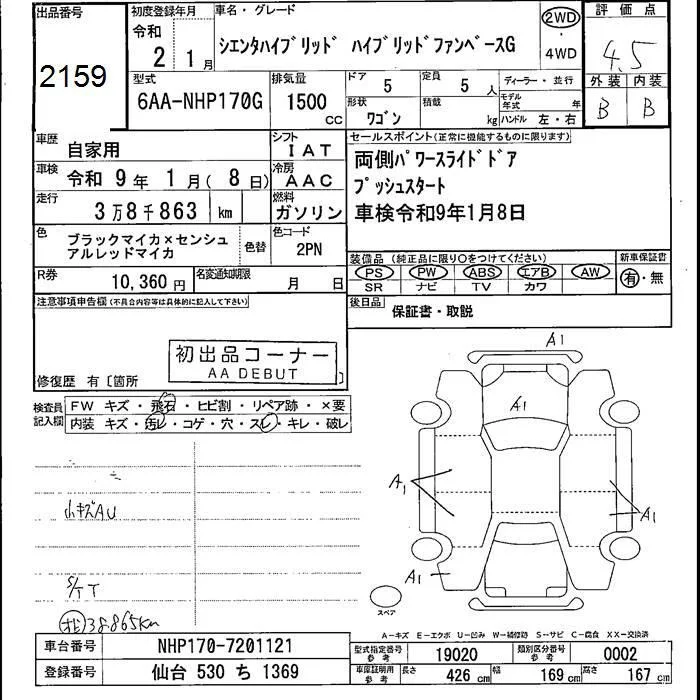 出品番号
2159
初度登録年月
令和
2 1月
車名・グレード
シエンタハイブリッド ハイブリッドファンベースG
2WD
・
4WD
評価点
4.5
外装 内装
B B
型式
6AA-NHP170G
排気量
1500
cc
ドア
5
定員
5 人
ディーラー・並行
モデル年式 年
形状
ワゴン
積載
kg
ハンドル 左・右
車歴
自家用
シフト
IAT
セールスポイント(正常に機能するものに限ります)
両側パワースライドドア
プッシュスタート
車検令和9年1月8日
車検
令和 9年 1月(8日)
冷房
AAC
走行
3万8千863 km
燃料
ガソリン
色
ブラックマイカ×センシュ
アルレッドマイカ
色替
色コード
2PN
装備品(純正品に限り○をつけてください)
PS PW ABS エアB AW
SR ナビ TV カワ
新車保証書
有・無
R券
10,360円
名変通知期限
月 日
後日品
保証書・取説
注意事項申告欄(不具合内容等は具体的に記入して下さい)
初出品コーナー
AA DEBUT
修復歴 有〔箇所 〕
検査員記入欄
FW キズ・飛石・ヒビ割・リペア跡・×要
内装 キズ・汚レ・コゲ・穴・スレ・キレ・破レ
A1
A1
A1
A1
A1
小キズAU
S/T T
オモ 38.865km
スペア
A-キズ E-エクボ U-凹み W-補修跡 S-サビ C-腐食 XX-交換済
車台番号
NHP170-7201121
型式指定番号参考
19020
類別区分番号参考
0002
登録番号
仙台 530 ち 1369
車庫証明用参考
長さ 426 cm 幅 169 cm 高さ 167 cm